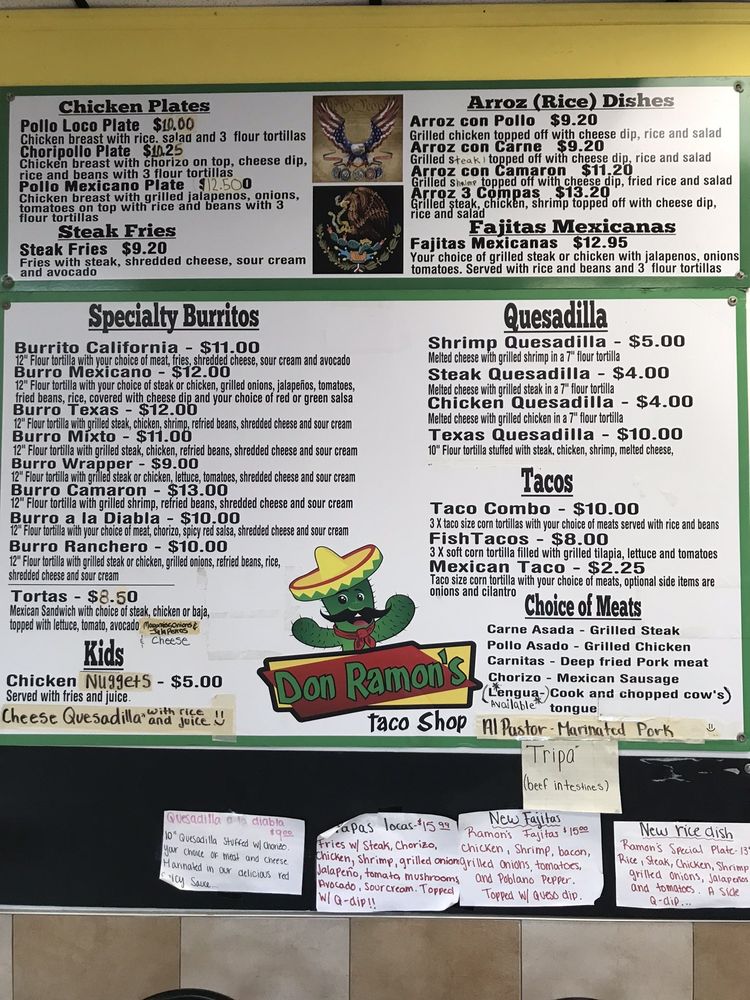 Chicken Plates
Pollo Loco Plate $10.00
Chicken breast with rice. salad and 3 flour tortillas
Choripollo Plate $10.25
Chicken breast with chorizo on top, cheese dip,
rice and beans with 3 flour tortillas
Pollo Mexicano Plate $12.50
Chicken breast with grilled jalapenos, onions,
tomatoes on top with rice and beans with 3
flour tortillas
Steak Fries
Steak Fries $9.20
Fries with steak, shredded cheese, sour cream
and avocado
Arroz (Rice) Dishes
Arroz con Pollo $9.20
Grilled chicken topped off with cheese dip, rice and salad
Arroz con Carne $9.20
Grilled steak topped off with cheese dip, rice and salad
Arroz con Camaron $11.20
Grilled Shrimp topped off with cheese dip, fried rice and salad
Arroz 3 Compas $13.20
Grilled steak, chicken, shrimp topped off with cheese dip,
rice and salad
Fajitas Mexicanas
Fajitas Mexicanas $12.95
Your choice of grilled steak or chicken with jalapenos, onions
tomatoes. Served with rice and beans and 3 flour tortillas
Specialty Burritos
Burrito California - $11.00
12" Flour tortilla with your choice of meat, fries, shredded cheese, sour cream and avocado
Burro Mexicano - $12.00
12" Flour tortilla with your choice of steak or chicken, grilled onions, jalapeños, tomatoes,
fried beans, rice, covered with cheese dip and your choice of red or green salsa
Burro Texas - $12.00
12" Flour tortilla with grilled steak, chicken, shrimp, refried beans, shredded cheese and sour cream
Burro Mixto - $11.00
12" Flour tortilla with grilled steak, chicken, refried beans, shredded cheese and sour cream
Burro Wrapper - $9.00
12" Flour tortilla with grilled steak or chicken, lettuce, tomatoes, shredded cheese and sour cream
Burro Camaron - $13.00
12" Flour tortilla with grilled shrimp, refried beans, shredded cheese and sour cream
Burro a la Diabla - $10.00
12" Flour tortilla with your choice of meat, chorizo, spicy red salsa, shredded cheese and sour cream
Burro Ranchero - $10.00
12" Flour tortilla with grilled steak or chicken, grilled onions, refried beans, rice,
shredded cheese and sour cream
Tortas - $8.50
Mexican Sandwich with choice of steak, chicken or baja,
topped with lettuce, tomato, avocado Mayonaise, Onions &
Jalapeños
& Cheese
Kids
Chicken Nuggets - $5.00
Served with fries and juice.
Cheese Quesadilla" with rice
and juice
Quesadilla
Shrimp Quesadilla - $5.00
Melted cheese with grilled shrimp in a 7" flour tortilla
Steak Quesadilla - $4.00
Melted cheese with grilled steak in a 7" flour tortilla
Chicken Quesadilla - $4.00
Melted cheese with grilled chicken in a 7" flour tortilla
Texas Quesadilla - $10.00
10" Flour tortilla stuffed with steak, chicken, shrimp, melted cheese,
Tacos
Taco Combo - $10.00
3 X taco size corn tortillas with your choice of meats served with rice and beans
FishTacos - $8.00
3 X soft corn tortilla filled with grilled tilapia, lettuce and tomatoes
Mexican Taco - $2.25
Taco size corn tortilla with your choice of meats, optional side items are
onions and cilantro
Choice of Meats
Carne Asada - Grilled Steak
Pollo Asado - Grilled Chicken
Carnitas - Deep fried Pork meat
Chorizo - Mexican Sausage
(Lengua-) Cook and chopped cow's)
Available* tongue
Al Pastor - Marinated Pork
Don Ramon's
Taco Shop
Tripa
(beef intestines)
Quesadilla a la diabla
$9.00
10" Quesadilla Stuffed w/ Chorizo,
your choice of meat and cheese
Marinated in our delicious red
Spicy Sauce...
Papas locas - $15.99
Fries w/ Steak, Chorizo,
Chicken, Shrimp, grilled onion
Jalapeño, tomato, mushrooms
Avocado, Sourcream. Topped
w/ Q-dip!!
New Fajitas
Ramon's Fajitas $15.00
Chicken, Shrimp, bacon,
grilled onions tomatoes,
and Poblano Pepper.
Topped w/ Queso dip.
New rice dish
Ramon's Special Plate - 13
Rice, Steak, Chicken, Shrimp
grilled onions, Jalapeños
and tomatoes. A Side
Q-dip...